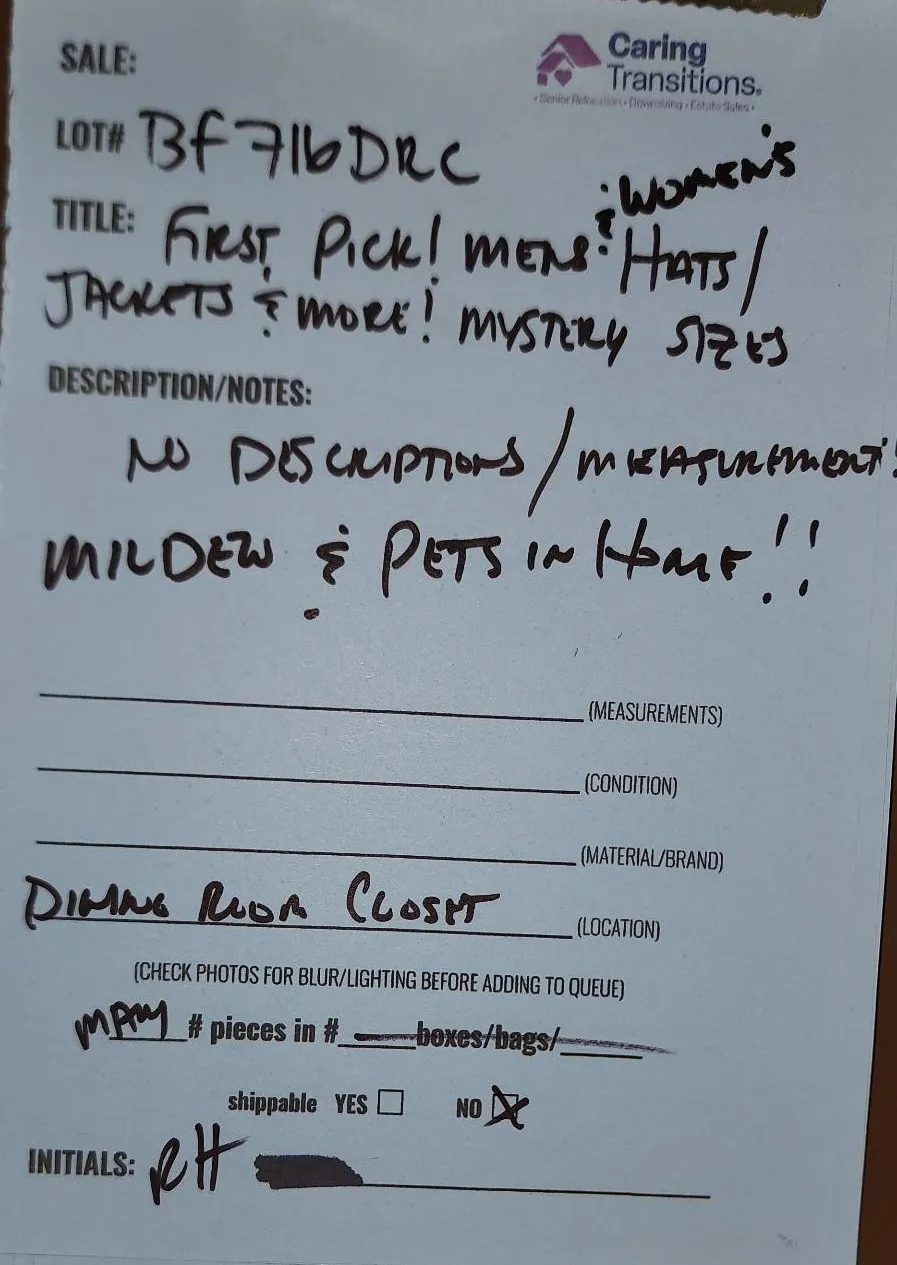 SALE:
Caring
Transitions.
• Senior Relocation • Downsizing • Estate Sales •
LOT# BF716DRC
TITLE: FIRST PICK! MENS & WOMEN'S HATS/
JACKETS & MORE! MYSTERY SIZES
DESCRIPTION/NOTES:
NO DESCRIPTIONS/MEASUREMENTS
MILDEW & PETS IN HOME!!
(MEASUREMENTS)
(CONDITION)
(MATERIAL/BRAND)
DINING ROOM CLOSET (LOCATION)
(CHECK PHOTOS FOR BLUR/LIGHTING BEFORE ADDING TO QUEUE)
MANY # pieces in # boxes/bags/
shippable YES ☐ NO ☒
INITIALS: RH